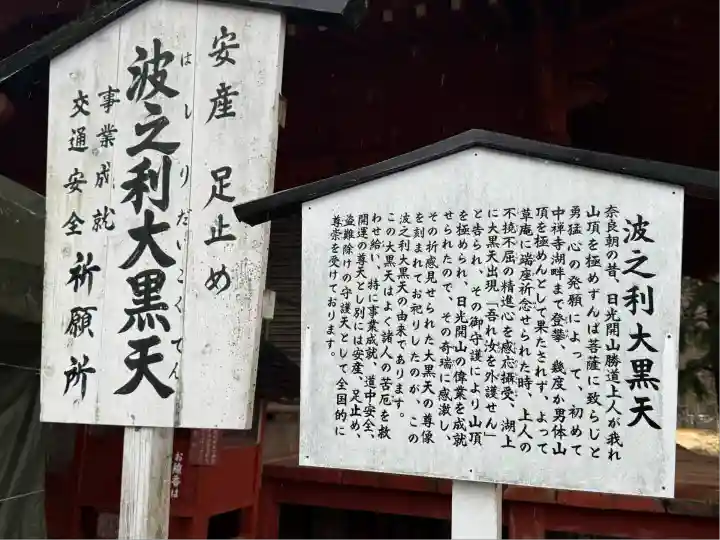 安産 足止め
波之利大黒天
はしりだいこくてん
事業成就
交通安全
祈願所
波之利大黒天
奈良朝の昔、日光開山勝道上人が我れ
山頂を極めずんば菩薩に致らじと
勇猛心の発願によって、初めて
中禅寺湖畔まで登攀、幾度か男体山
頂を極めんとして果たされず、よって
草庵に端座祈念せられた時、上人の
不撓不屈の精進心を感応攝受、湖上
に大黒天出現「吾れ汝を外護せん」
と告られ、その御守護により山頂
を極められ、日光開山の偉業を成就
せられたので、その奇瑞に感激し、
その祈感見せられた大黒天の尊像
を刻まれてお祀りしたのが、この
波之利大黒天の由来であります。
この大黒天はよく諸人の苦厄を救
わせ給い、特に事業成就、道中安全、
開運の尊天とし別には安産、足止め、
盗難除けの守護天として全国的に
尊崇を受けております。
お線香は